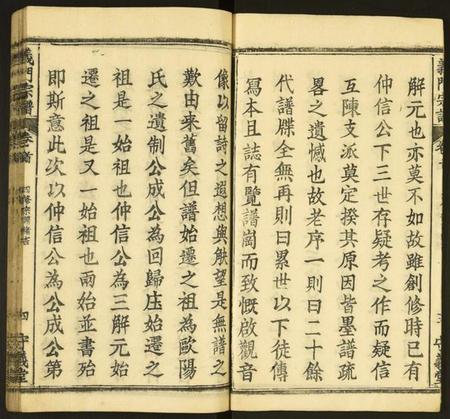 義門宗譜 卷
解元也亦莫不如故雖創修時已有
仲信公下三世存疑考之作而疑信
互陳支派莫定揆其原因皆墨譜疏
畧之遺憾也故老序一則曰二十餘
代譜牒全無再則曰累世以下徒傳
寫本且誌有覽譜崗而致慨啟觀音
像以留詩之遐想與觖望是無譜之
歎由來舊矣但譜始遷之祖為歐陽
氏之遺制公成公為回歸庄始遷之
祖也是一始祖也仲信公為三解元始
遷之祖是又一始祖也兩始並書殆
即斯意此次以仲信公為公成公第
義門宗譜 卷首
四 守義堂